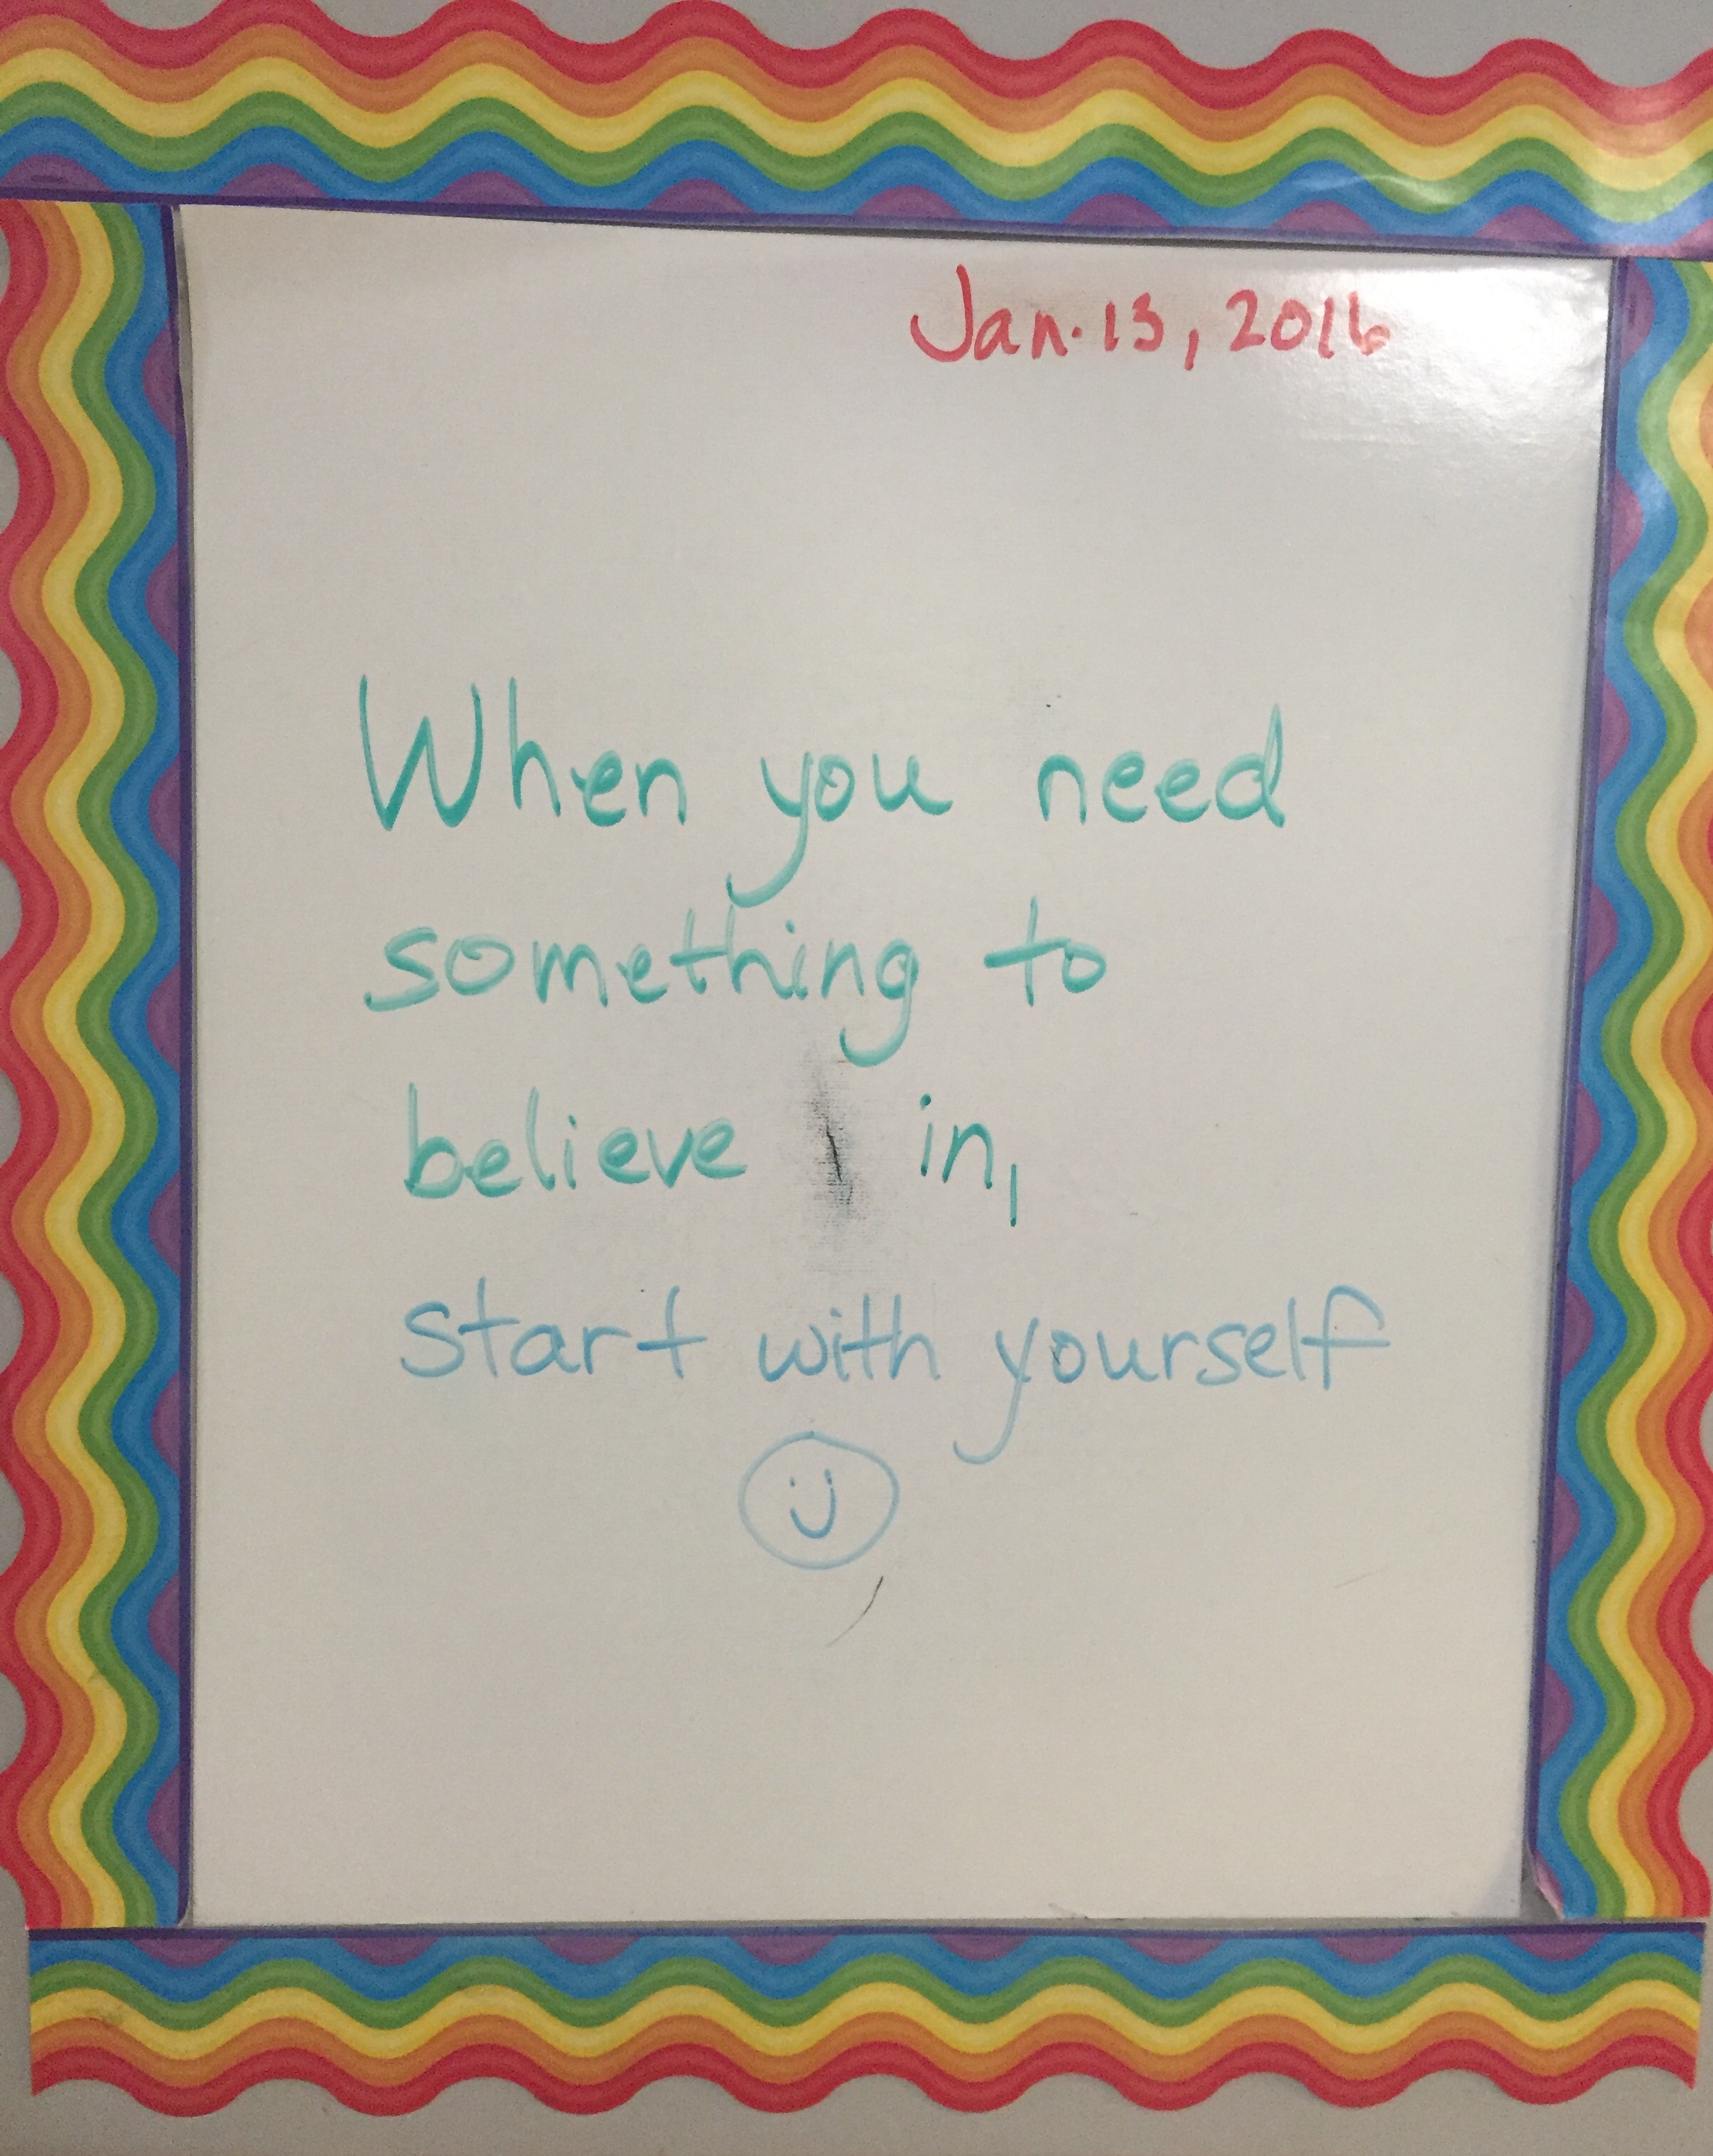 Jan. 13, 2016
When you need
something to
believe in,
start with yourself